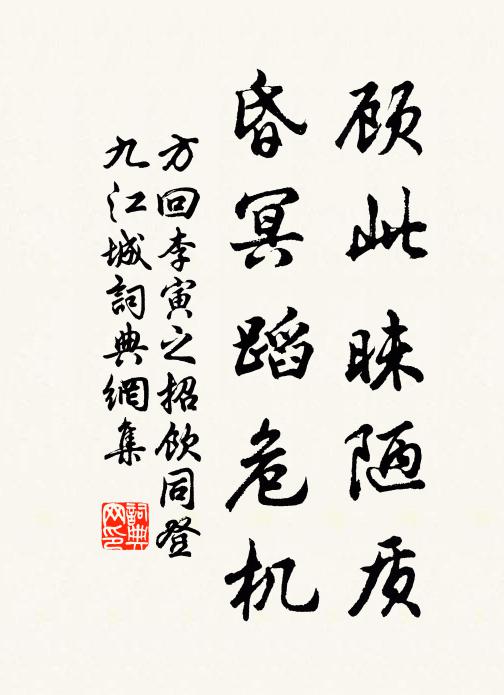 顾此昧陋质
昏冥蹈危机
方回李寅之招饮同登
九江城詞典網集
詞典
网印